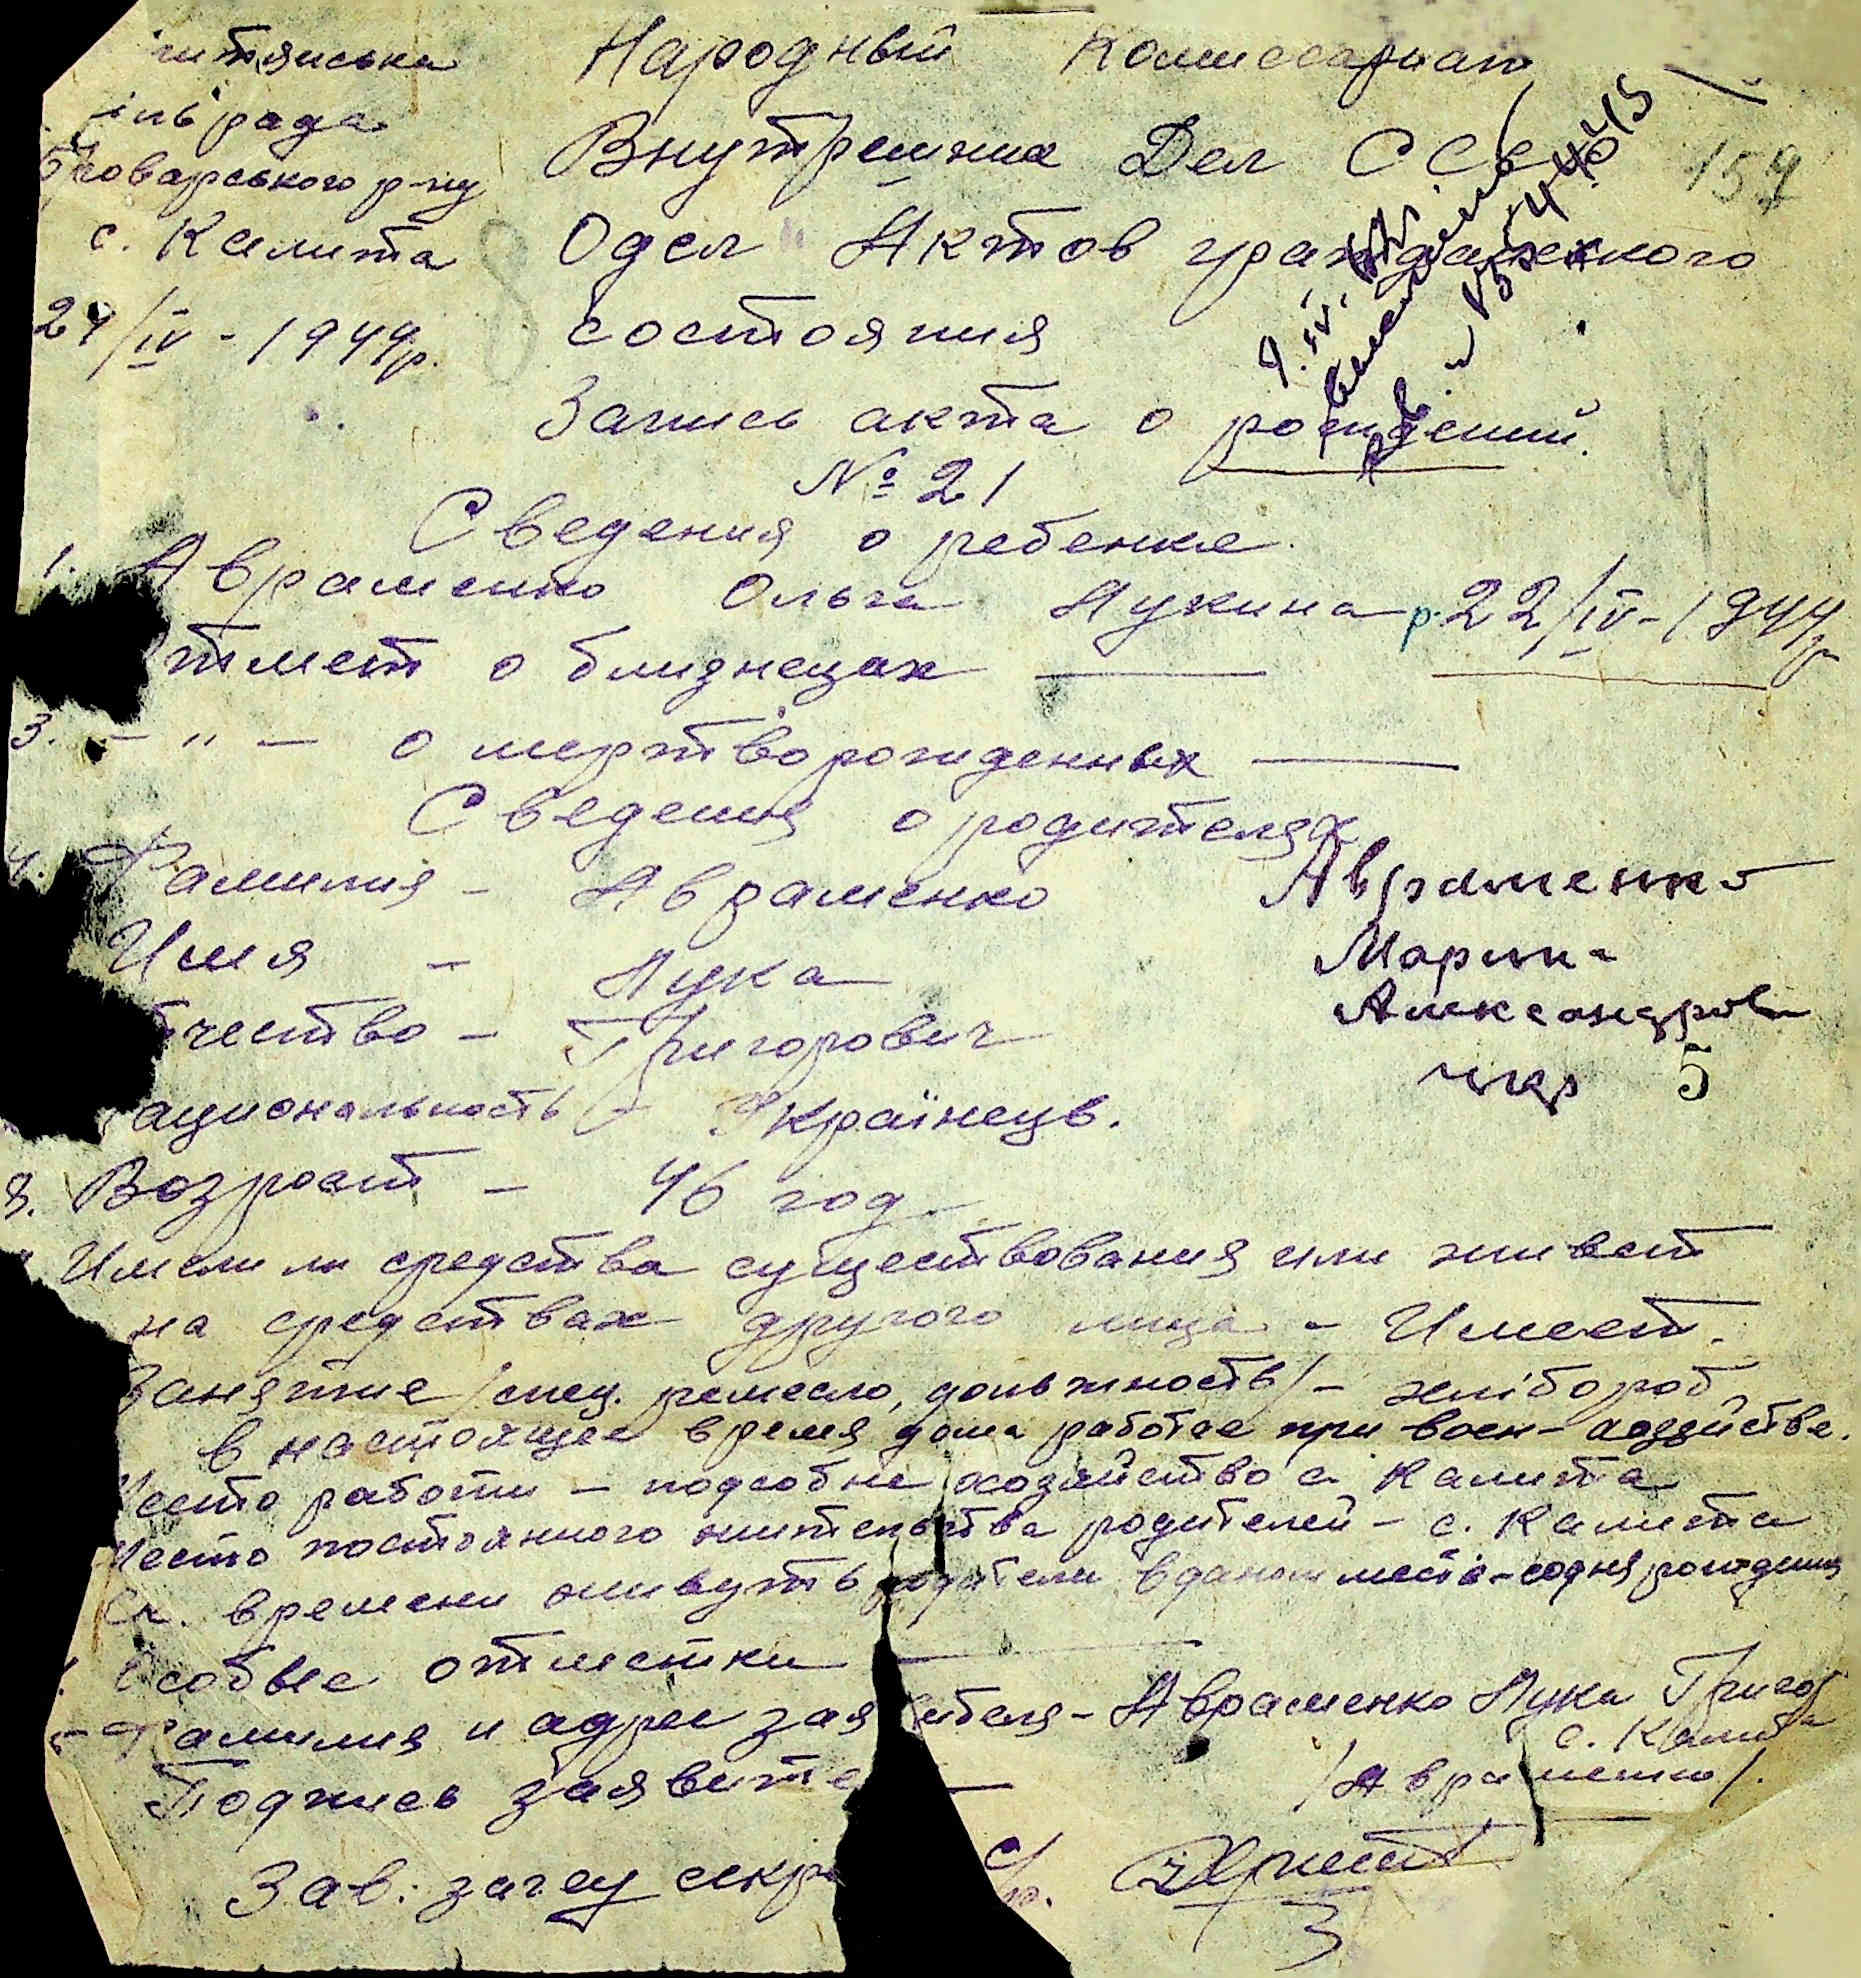 рада
р-ну
с. Калита
24/IV - 1944р.
Народный Комиссариат
Внутренних Дел СССР
157
Одел Актов гражданского
состояния
Запись акта о рождений.
№ 21
Сведения о ребенке.
1. Авраменко Ольга Лукина р. 22/IV-1944р
тмет о близнецах —
3. - " - о мертворожденных —
Сведения о родителях
4. Фамилия - Авраменко
Имя - Лука
чество - Григорович
ациональность - Українець.
8. Возраст - 46 год
Авраменко
Мария
Александров
укр 5
Имели ли средства существования или живет
на средствах другого лица - Имеет.
Занятие /спец. ремесло, должность/ - хлібороб,
в настоящее время дома работае при воен-хозяйстве.
место работи - подсобне хозяйство с. Калита
место постоянного жительства родителей - с. Калита
Ск. времени живуть родители в даном месте - со дня рождения
Особые отметки —
5- Фамилия и адрес зая ителя - Авраменко Лука Григор
с. Калита
Подпись заявите — /Авраменко/.
Зав. загсу секр с/р.